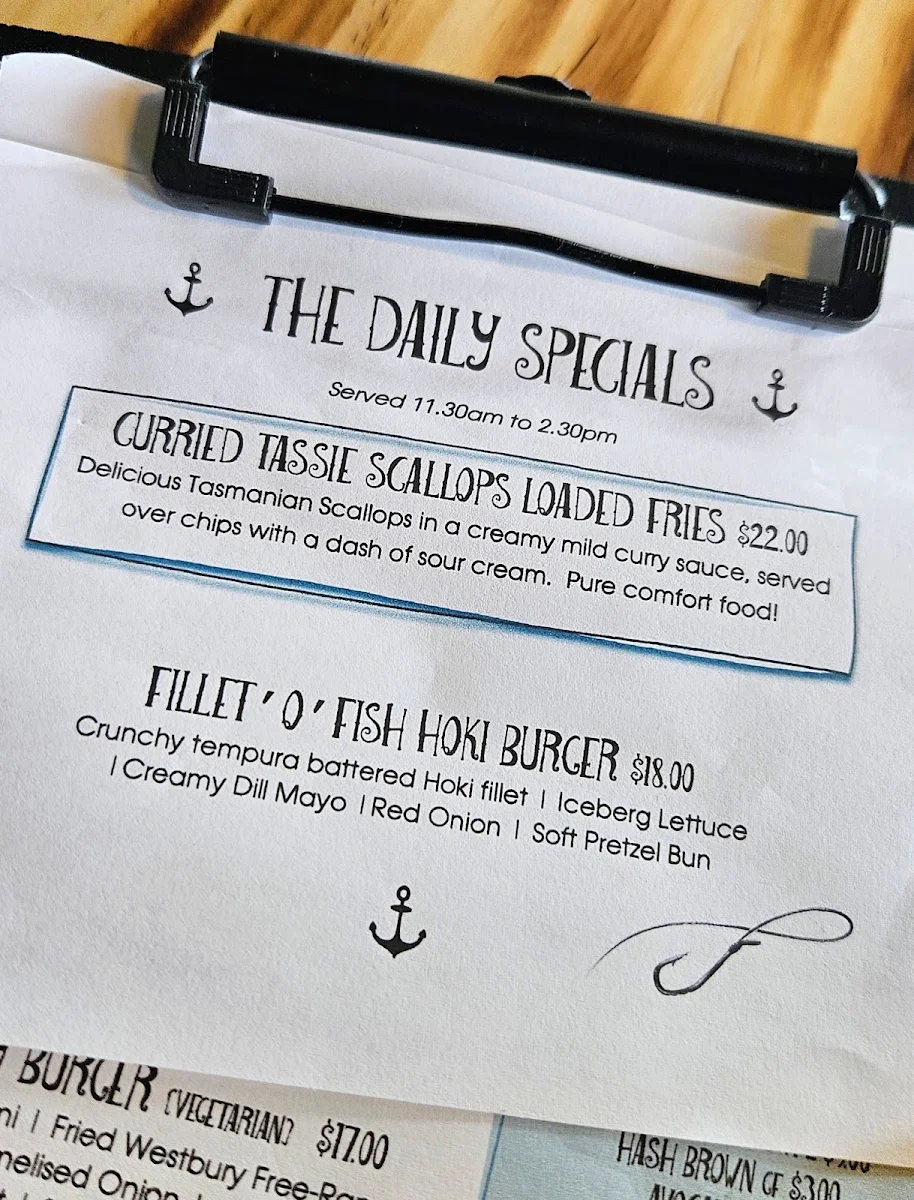 THE DAILY SPECIALS
Served 11.30am to 2.30pm
CURRIED TASSIE SCALLOPS LOADED FRIES $22.00
Delicious Tasmanian Scallops in a creamy mild curry sauce, served
over chips with a dash of sour cream. Pure comfort food!
FILLET 'O' FISH HOKI BURGER $18.00
Crunchy tempura battered Hoki fillet | Iceberg Lettuce
| Creamy Dill Mayo | Red Onion | Soft Pretzel Bun
BURGER (VEGETARIAN) $17.00
| Fried Westbury Free-
Onion
HASH BROWN GF $3.00